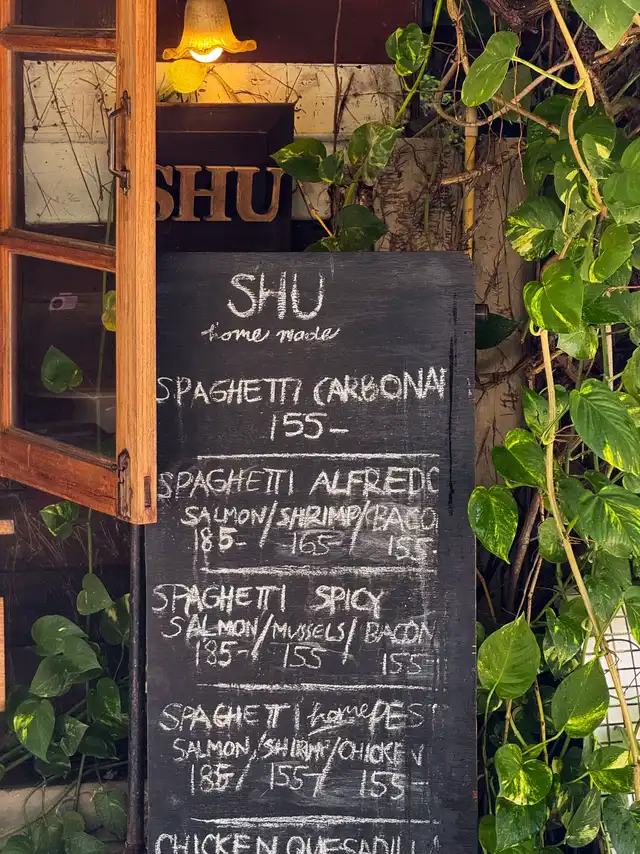 SHU
SHU
home made
SPAGHETTI CARBONA
155-
SPAGHETTI ALFREDO
SALMON/SHRIMP/BACO
185-/165/155-
SPAGHETTI SPICY
SALMON/MUSSELS/BACON
185-/155/155-
SPAGHETTI home PES
SALMON/SHRIMP/CHICKEN
185/155/155-
CHICKEN QUESADILL